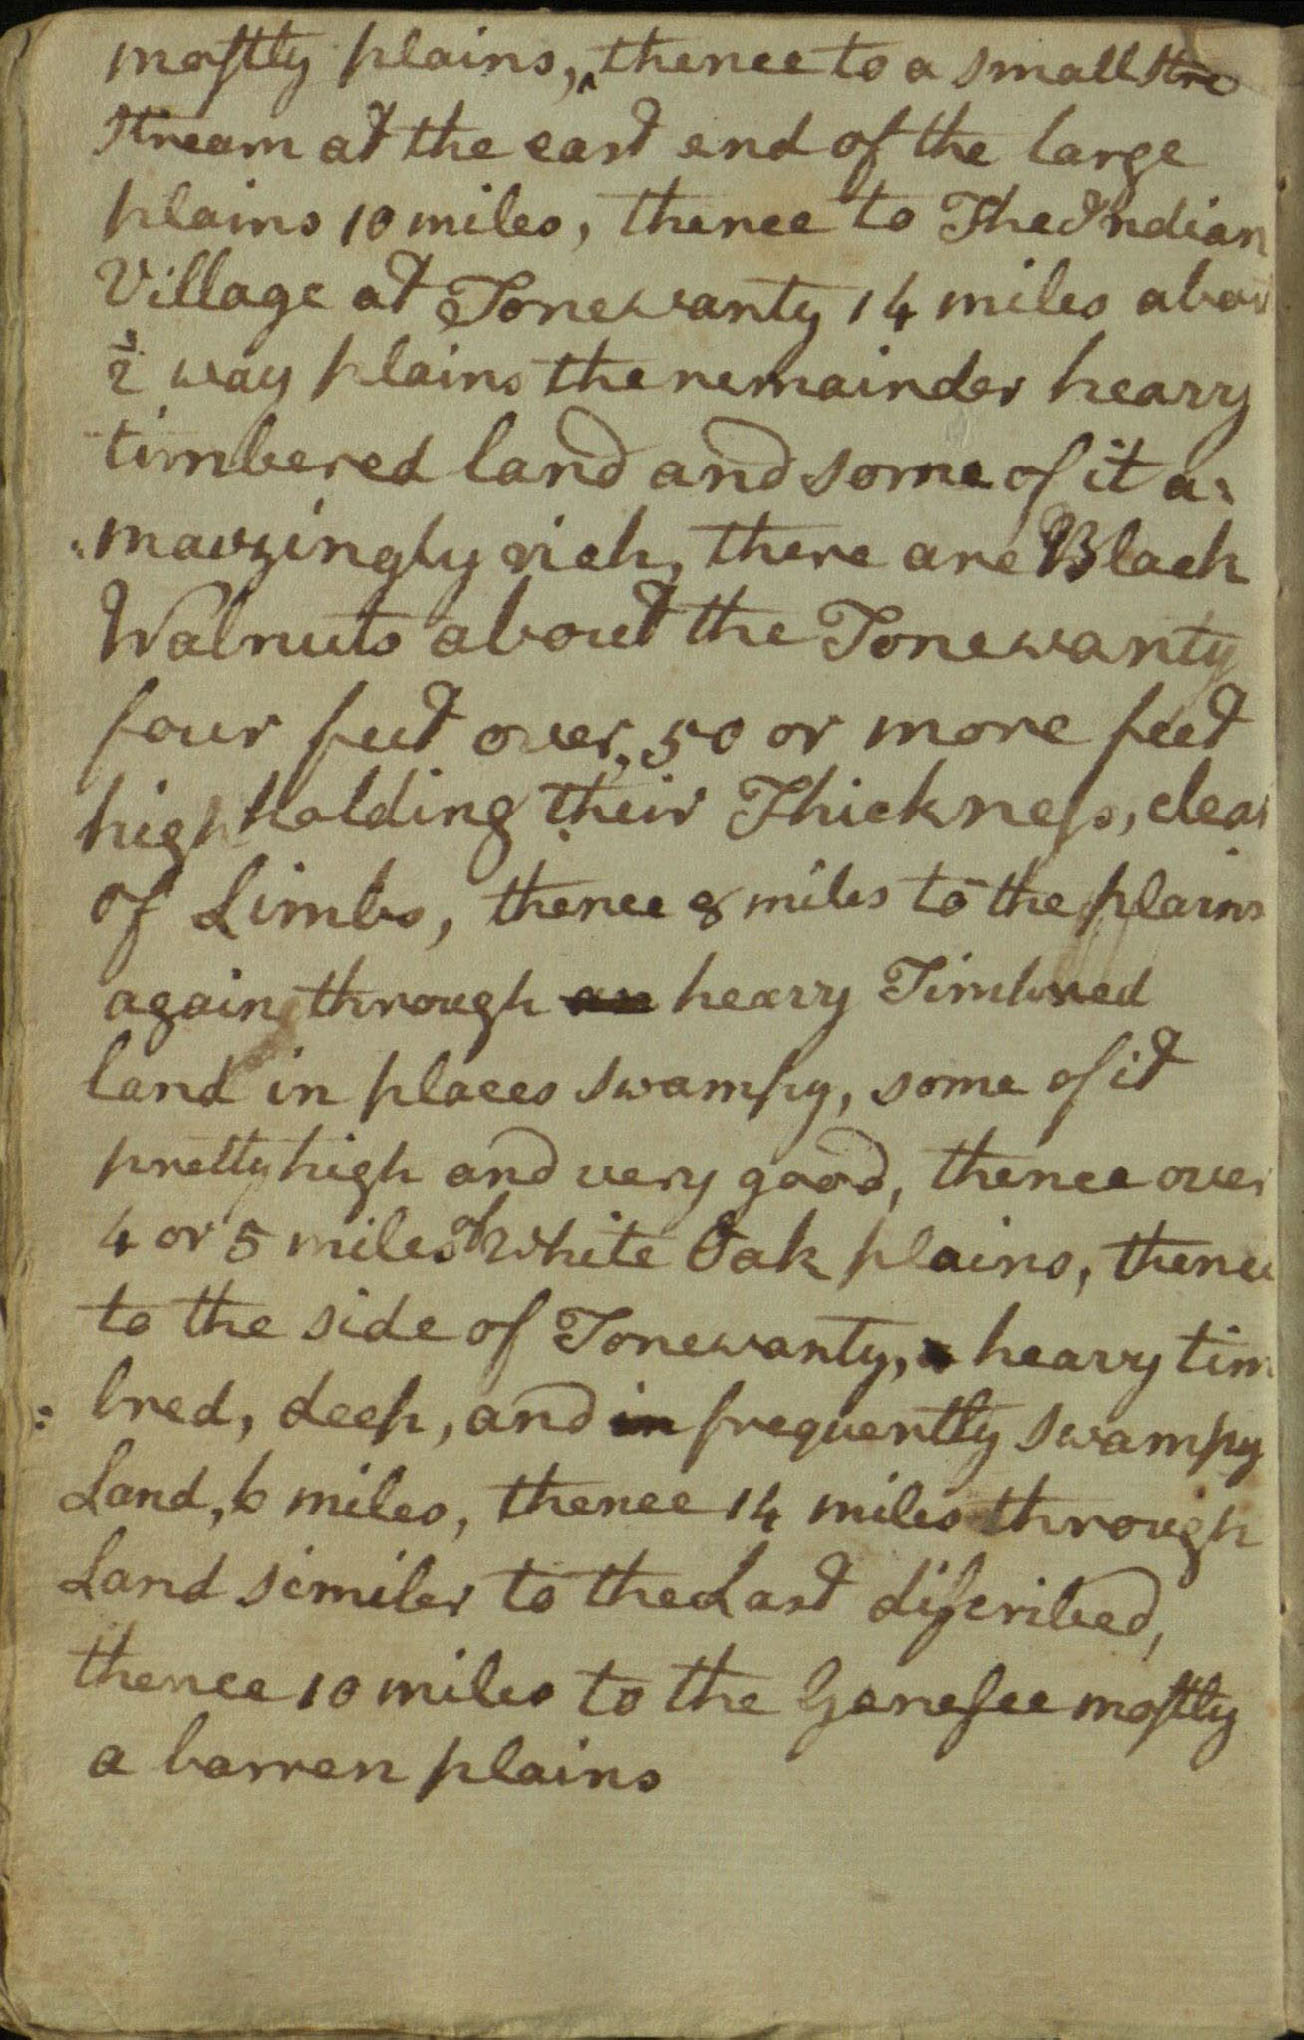 mostly plains, thence to a small stre
stream at the east end of the large
plains 10 miles, thence to The Indian
Village at Tonewanty 14 miles abou
1/2 way plains the remainder heavy
timbered land and some of it a:
:mauzingly rich, there are Black
Walnuts about the Tonewanty
four feet over, 50 or more feet
high holding their Thickness, clear
of Limbs, thence 8 miles to the plains
again through heavy Timbred
land in places swampy, some of it
pretty high and very good, thence over
4 or 5 miles of White Oak plains, thence
to the side of Tonewanty, heavy tim
: bred, deep, and in frequently swampy
Land, 6 miles, thence 14 miles through
Land similer to the Last discribed,
thence 10 miles to the Genesee mostly
a barren plains